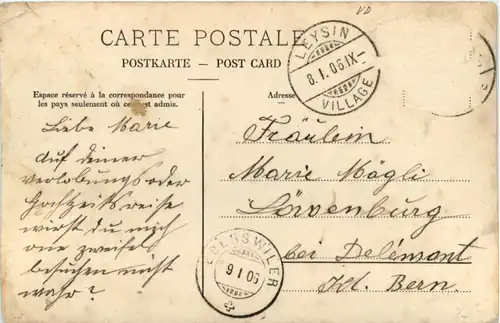 VD
CARTE POSTALE
POSTKARTE — POST CARD
Espace réservé à la correspondance pour
les pays seulement où ce c'est admis.
Adresse
LEYSIN
8.I.06.IX–
VILLAGE
Liebe Marie
auf deiner
verlobungs oder
Hochzeitsreise
wirst du mich
one zweifel
besuchen nicht
wahr?
Fräulein
Marie Mägli
Löwenburg
bei Delémont
Kt. Bern.
9 I 06